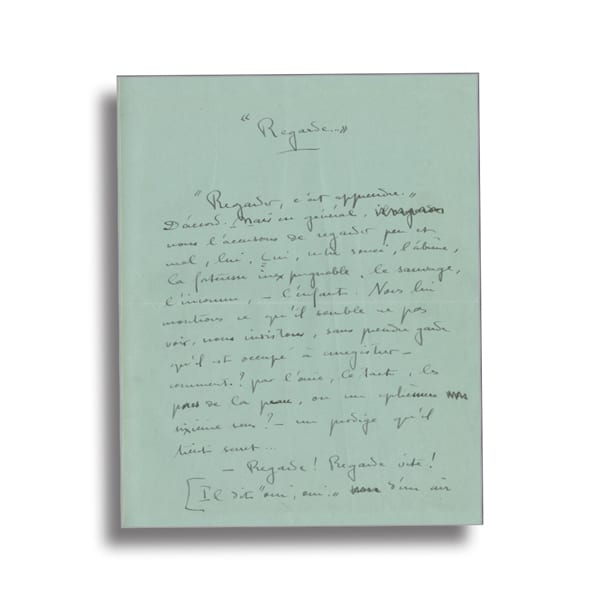 « Regarde... »
« Regarder, c'est apprendre. »
D'accord. Mais en général,
nous l'accusons de regarder peu et
mal, lui, Lui, notre souci, l'abîme,
la forteresse inexpugnable, le sauvage,
l'inconnu, – l'enfant. Nous lui
montrons ce qu'il semble ne pas
voir, nous insistons, sans prendre garde
qu'il est occupé à enregistrer –
comment ? par l'ouïe, le tact, les
pores de la peau, ou un
sixième sens ? – un prodige qu'il
tient secret...
– Regarde ! Regarde vite !
[Il dit "oui, oui." d'un air